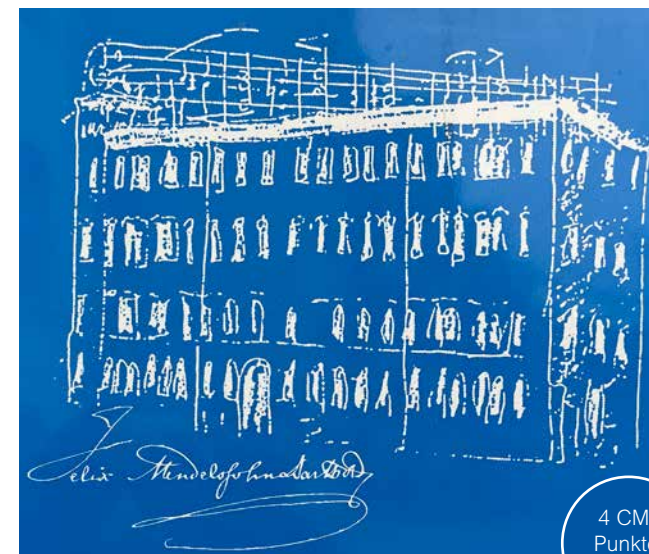 Felix Mendelssohn Bartholdy
4 CM
Punkt